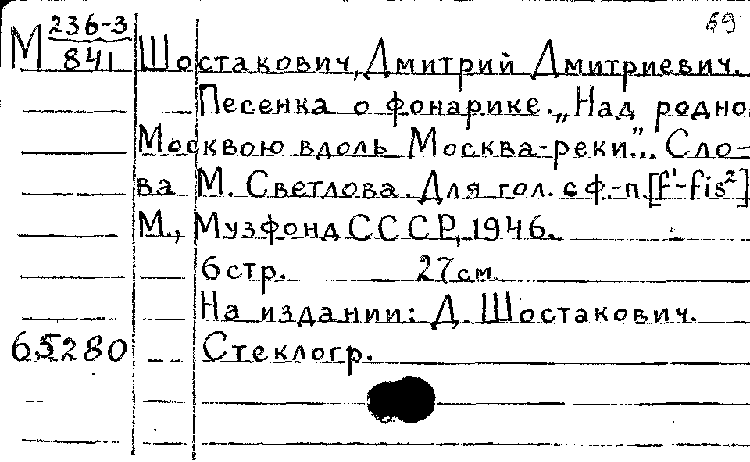 М 236-3 59
841 Шостакович, Дмитрий Дмитриевич.
Песенка о фонарике. „Над родно
Москвою вдоль Москва-реки"... Сло-
ва М. Светлова. Для гол. с ф.-п. [f¹-fis²]
М., Музфонд СССР, 1946.
6 стр. 27 см
На издании: Д. Шостакович.
65280 Стеклогр.